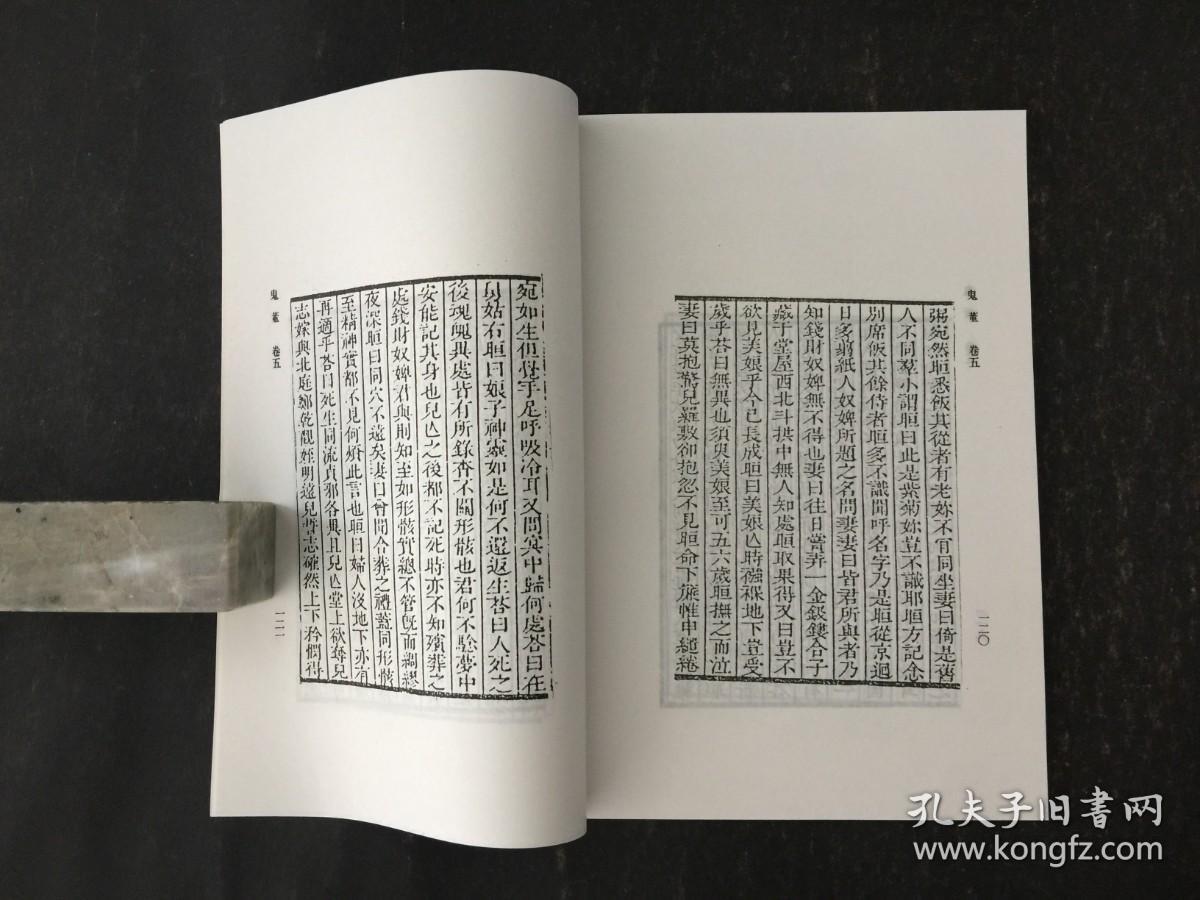 鬼董　卷五
粥宛然晅悉飯其從者有老妳不肯同坐妻曰倚是舊
人不同羣小謂晅曰此是紫菊妳豈不識耶晅方記念
別席飯其餘侍者晅多不識聞呼名字乃是晅從京迴
日多剪紙人奴婢所題之名問妻妻曰皆君所與者乃
知錢財奴婢無不得也妻曰往日嘗弄一金鈒鏤合子
藏于堂屋西北斗拱中無人知處晅取果得又曰豈不
欲見美娘乎今已長成晅曰美娘亾時襁褓地下豈受
歲乎荅曰無異也須臾美娘至可五六歲晅撫之而泣
妻曰莫抱驚兒羅敷卻抱忽不見晅命下簾帷申繾綣
一二〇
宛如生但覺手足呼吸冷耳又問冥中歸何處荅曰在
舅姑右晅曰娘子神靈如是何不還返生荅曰人死之
後魂魄異處皆有所錄杳不關形骸也君何不騐夢中
安能記其身也兒亾之後都不記死時亦不知殯葬之
處錢財奴婢君與則知至如形骸實總不管旣而綢繆
夜深晅曰同穴不遠矣妻曰曾聞合葬之禮蓋同形骸
至精神實都不見何煩此言也晅曰婦人沒地下亦有
再適乎荅曰死生同流貞邪各異且兒亾堂上欲奪兒
志嫁與北庭鄭乾觀姪明遠兒誓志確然上下矜憫得
鬼董　卷五
一二一
孔夫子旧书网
www.kongfz.com